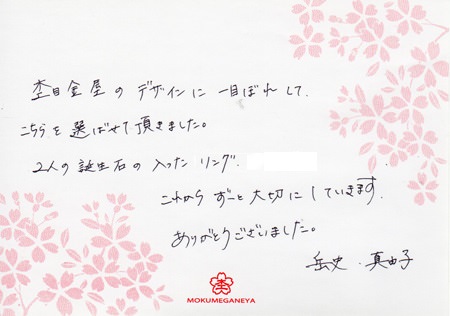 杢目金屋のデザインに一目ぼれして、
こちらを選ばせて頂きました。
2人の誕生石の入ったリング。
これからずーと大切にしていきます。
ありがとうございました。
岳史・真由子
杢
MOKUMEGANEYA